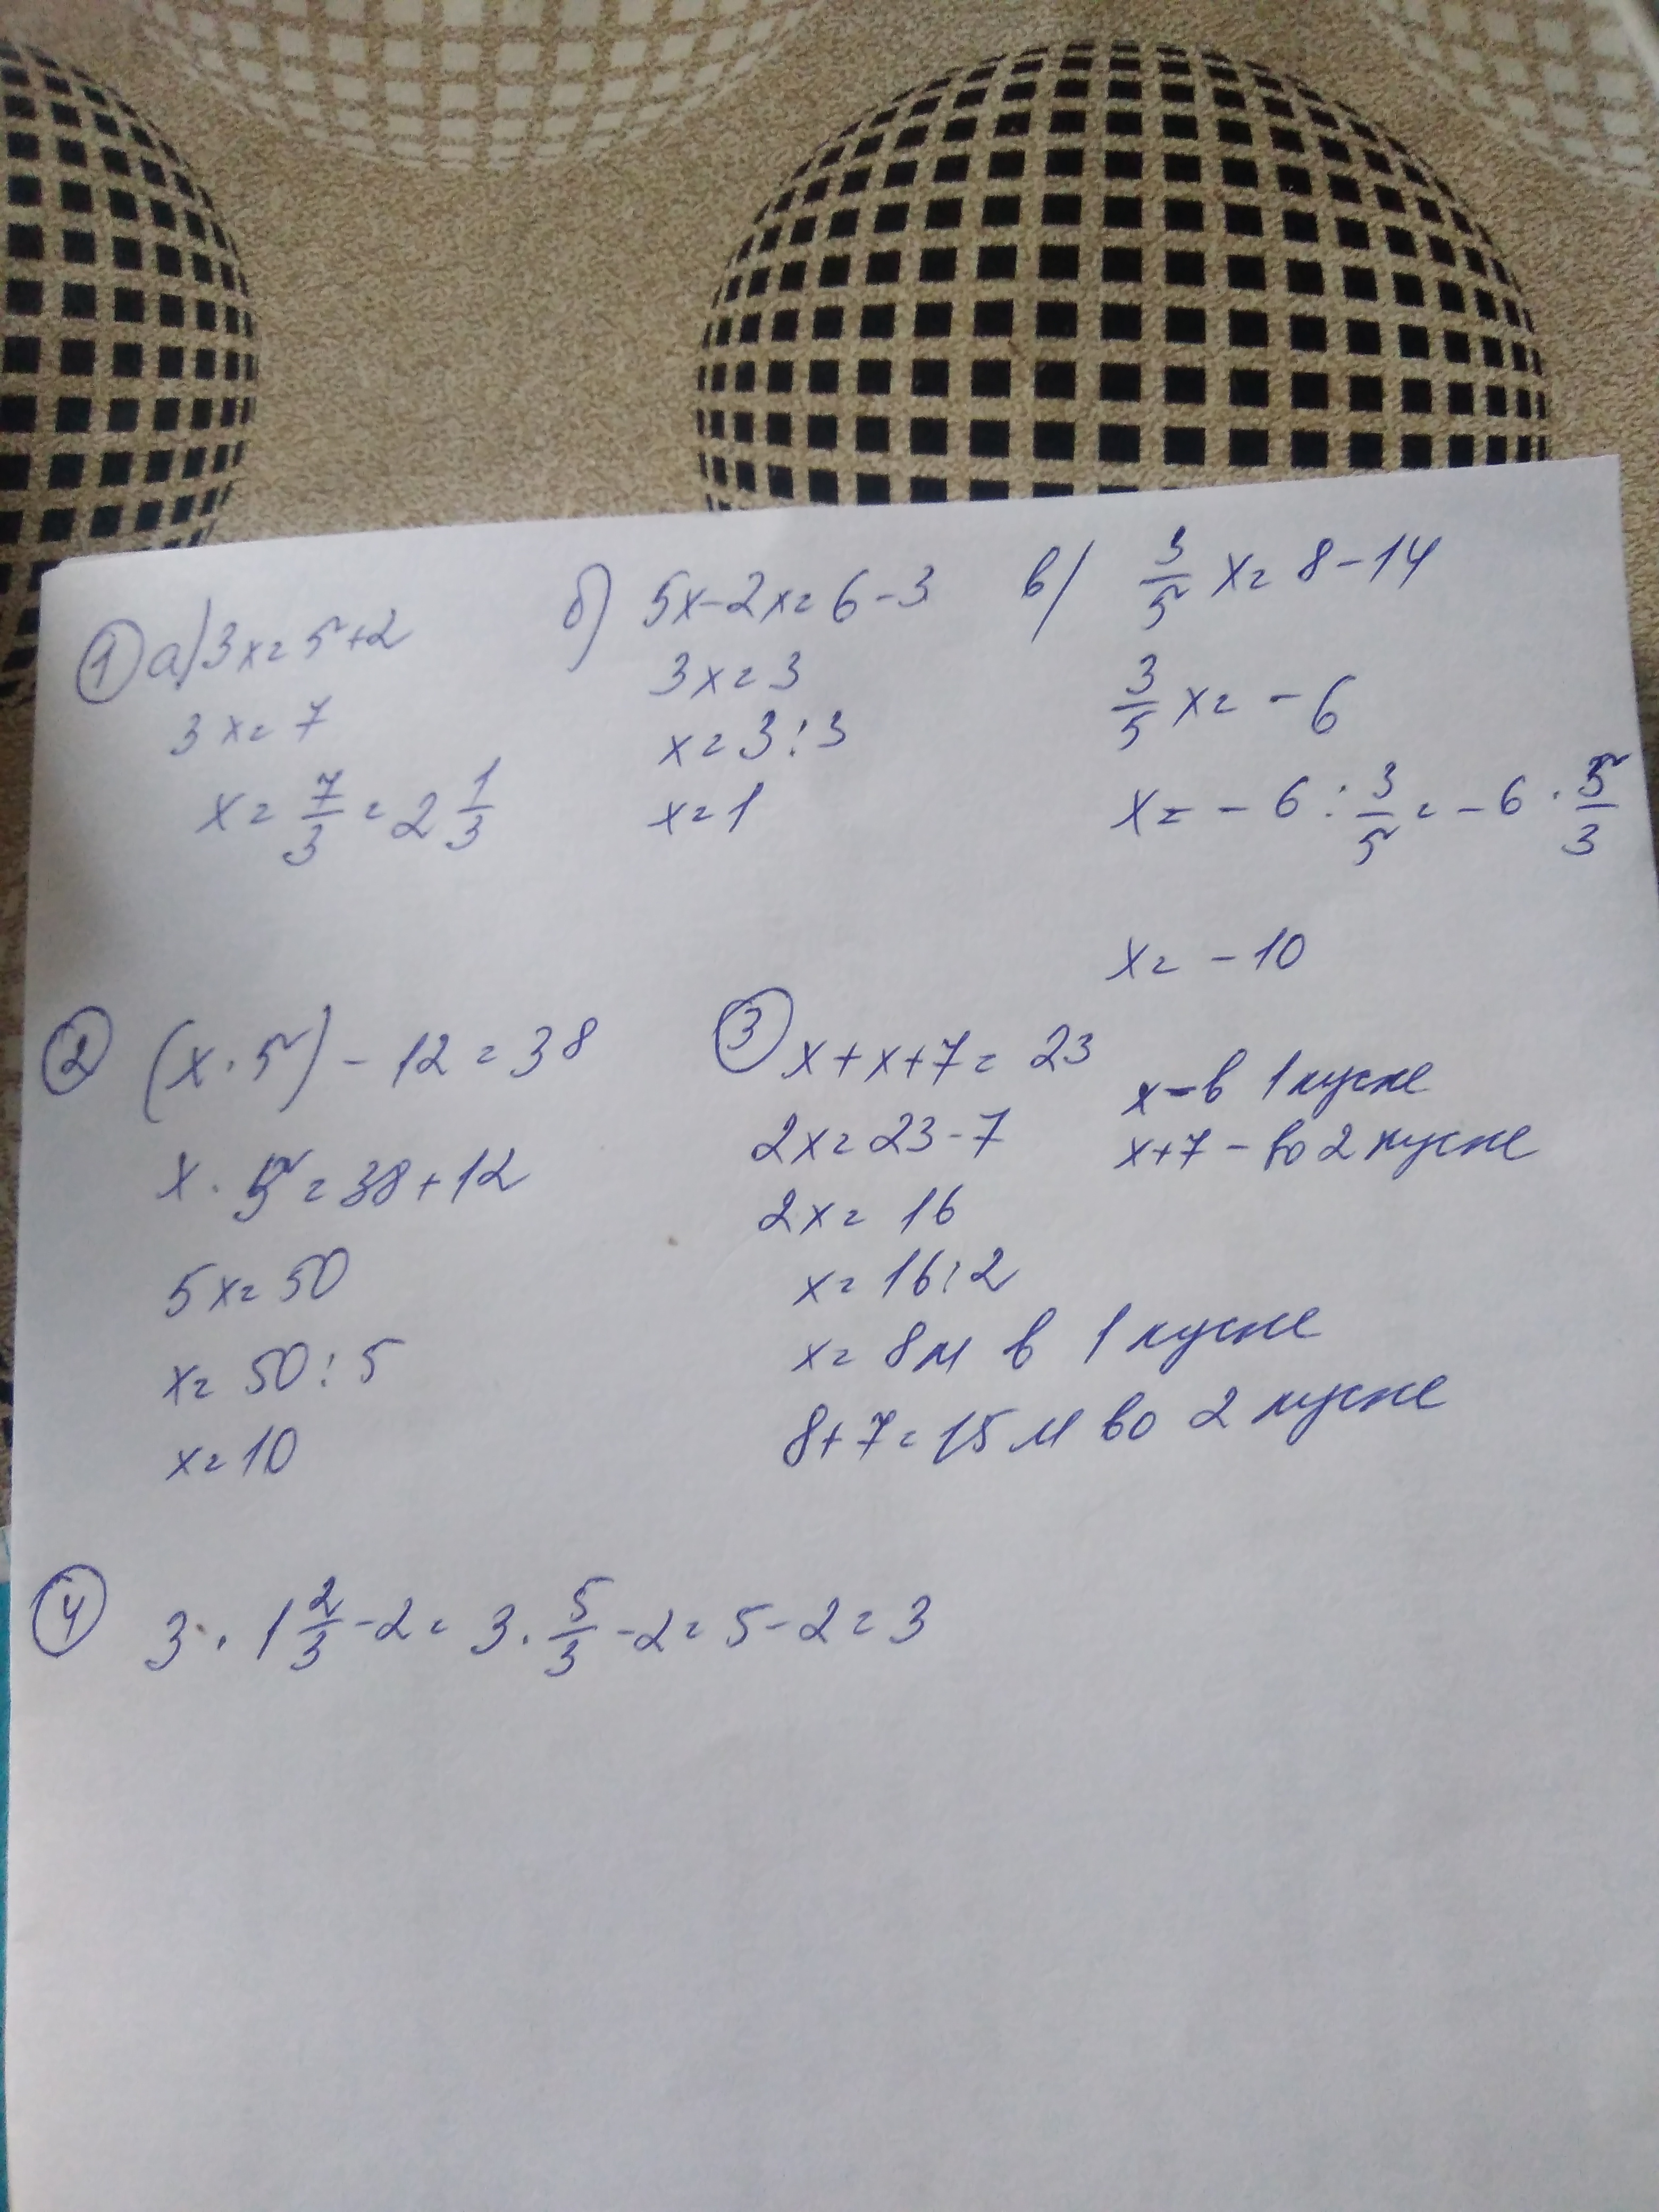 ① а) 3x = 5+2
3x = 7
x = 7/3 = 2 1/3
б) 5x-2x = 6-3
3x = 3
x = 3:3
x = 1
в) 3/5 x = 8-14
3/5 x = -6
x = -6 : 3/5 = -6 · 5/3
x = -10
② (x · 5) - 12 = 38
x · 5 = 38+12
5x = 50
x = 50:5
x = 10
③ x+x+7 = 23
2x = 23-7
2x = 16
x = 16:2
x = 8м в 1 куске
8+7 = 15 м во 2 куске
x - в 1 куске
x+7 - во 2 куске
④ 3 · 1 2/3 - 2 = 3 · 5/3 - 2 = 5-2 = 3